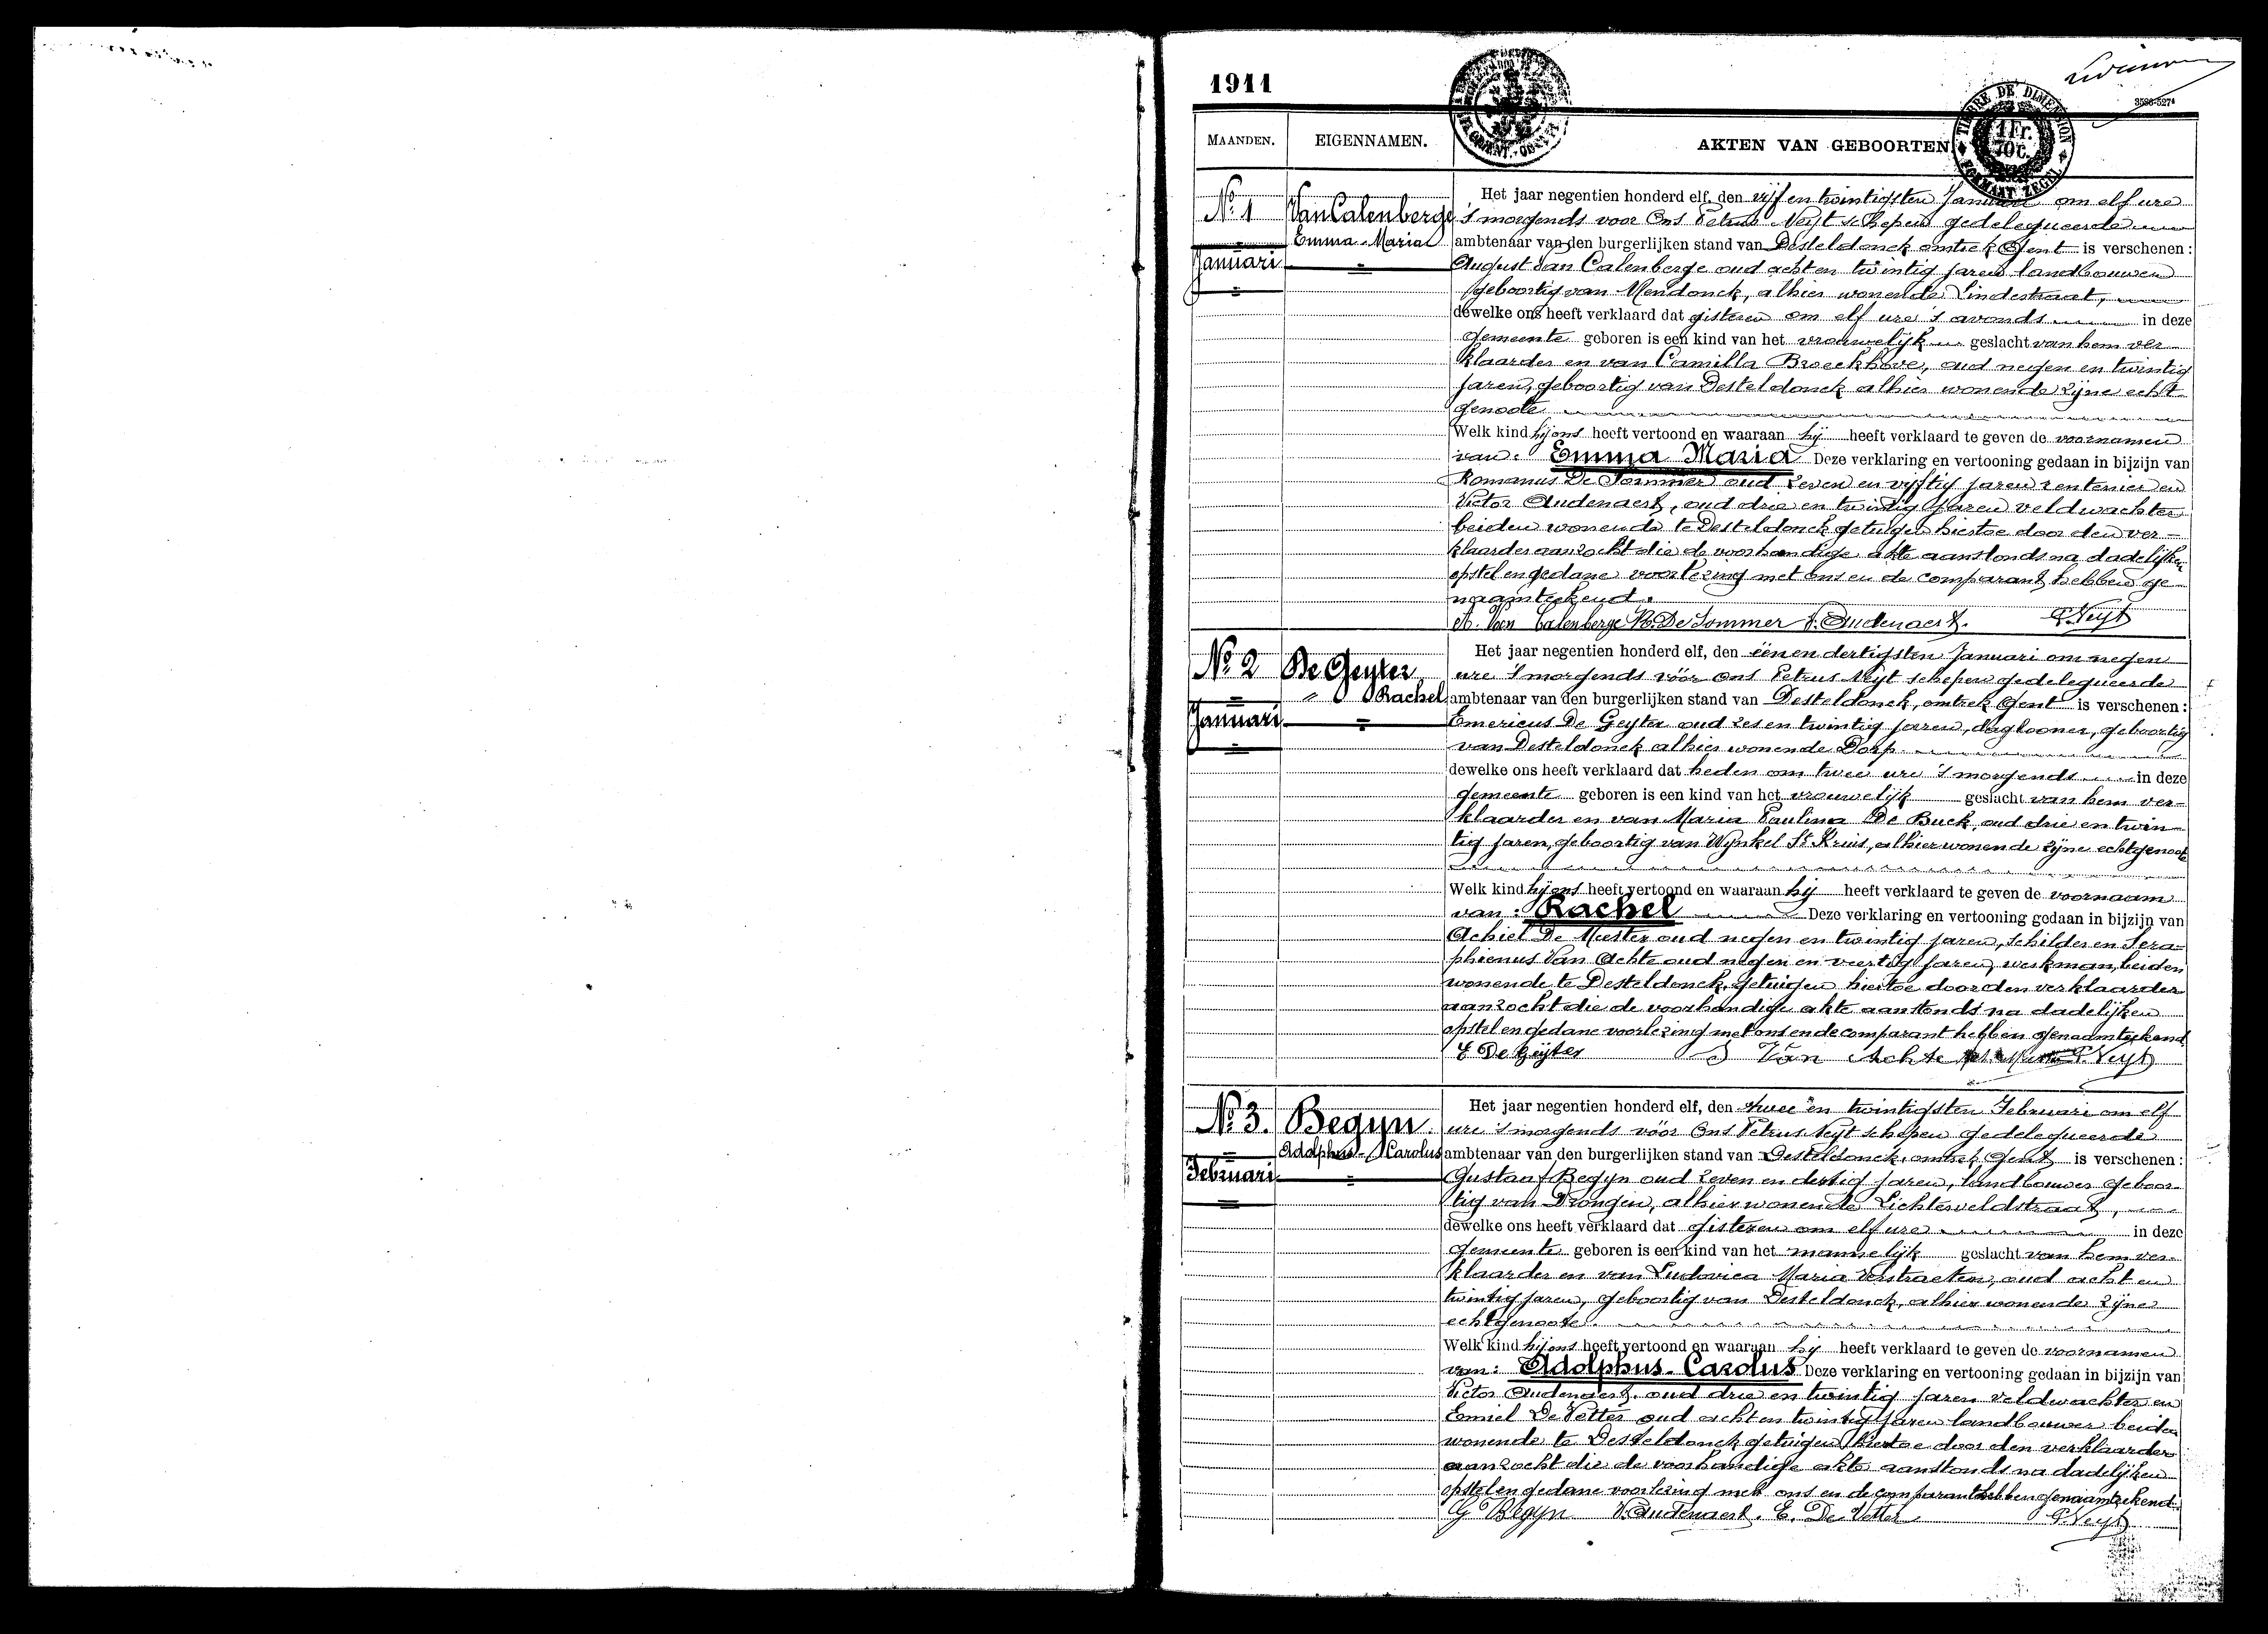 1911
3586-527⁴
TIMBRE DE DIMENSION
1 Fr.
70 C.
FORMAAT ZEGEL
MAANDEN. EIGENNAMEN. AKTEN VAN GEBOORTEN
Nº 1
Januari
Van Calenberge
Emma-Maria
Het jaar negentien honderd elf, den vijf en twintigsten Januari om elf ure
's morgends voor Ons Petrus Neyt schepen gedelegueerde
ambtenaar van den burgerlijken stand van Desteldonck omtrek Gent is verschenen:
August Van Calenberge oud acht en twintig jaren landbouwer
geboortig van Mendonck, alhier wonende Lindestraat,
dewelke ons heeft verklaard dat gisteren om elf ure 's avonds in deze
gemeente geboren is een kind van het vrouwelijk geslacht van hem ver
klaarder en van Camilla Broeckhove, oud negen en twintig
jaren, geboortig van Desteldonck alhier wonende zijne echt
genoote
Welk kind hij ons heeft vertoond en waaraan hij heeft verklaard te geven de voornamen
van: Emma Maria Deze verklaring en vertooning gedaan in bijzijn van
Romanus De Sommer oud zeven en vijftig jaren rentenier en
Victor Audenaert, oud drie en twintig jaren veldwachter
beiden wonende te Desteldonck getuigen hiertoe door den ver-
klaarder aanzocht die de voorhandige akte aanstonds na dadelijken
opstel en gedane voorlezing met ons en de comparant hebben ge
naamteekend.
A. Van Calenberge R. De Sommer V. Audenaert. P. Neyt
Nº 2
Januari
De Geyter
" Rachel
Het jaar negentien honderd elf, den éen en dertigsten Januari om negen
ure 's morgends vóór ons Petrus Neyt schepen gedelegueerde
ambtenaar van den burgerlijken stand van Desteldonck, omtrek Gent is verschenen:
Emericus De Geyter oud zes en twintig jaren, daglooner, geboortig
van Desteldonck alhier wonende Dorp
dewelke ons heeft verklaard dat heden om twee ure 's morgends in deze
gemeente geboren is een kind van het vrouwelijk geslacht van hem ver-
klaarder en van Maria Paulina De Buck, oud drie en twin
tig jaren, geboortig van Wynkel St Kruis, alhier wonende zijne echtgenoote
Welk kind hij ons heeft vertoond en waaraan hij heeft verklaard te geven de voornaam
van: Rachel Deze verklaring en vertooning gedaan in bijzijn van
Achiel De Meester oud negen en twintig jaren, schilder en Sera-
phienus Van Achte oud negen en veertig jaren, werkman, beiden
wonende te Desteldonck, getuigen hiertoe door den verklaarder
aanzocht die de voorhandige akte aanstonds na dadelijken
opstel en gedane voorlezing met ons en de comparant hebben genaamteekend
E De Geijter S Van Achte P. Neyt
Nº 3.
Februari
Begyn.
Adolphus-Carolus
Het jaar negentien honderd elf, den twee en twintigsten Februari om elf
ure 's morgends vóór Ons Petrus Neyt schepen gedelegueerde
ambtenaar van den burgerlijken stand van Desteldonck, omtrek Gent is verschenen:
Gustaaf Begyn oud zeven en dertig jaren, landbouwer geboor
tig van Drongen, alhier wonende Lichterveldstraat,
dewelke ons heeft verklaard dat gisteren om elf ure in deze
gemeente geboren is een kind van het mannelijk geslacht van hem ver-
klaarder en van Ludovica Maria Verstraeten, oud acht en
twintig jaren, geboortig van Desteldonck, alhier wonende zijne
echtgenoote.
Welk kind hij ons heeft vertoond en waaraan hij heeft verklaard te geven de voornamen
van: Adolphus-Carolus Deze verklaring en vertooning gedaan in bijzijn van
Victor Audenaert, oud drie en twintig jaren veldwachter en
Emiel De Vetter oud acht en twintig jaren landbouwer beiden
wonende te Desteldonck getuigen hiertoe door den verklaarder
aanzocht die de voorhandige akte aanstonds na dadelijken
opstel en gedane voorlezing met ons en de comparant hebben genaamteekend.
G Begyn V. Audenaert. E. De Vetter P. Neyt